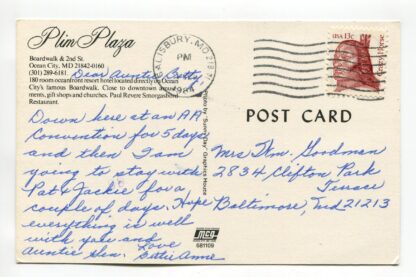 Plim Plaza
Boardwalk & 2nd St.
Ocean City, MD 21842-0160
(301) 289-6181.
180 room oceanfront resort hotel located directly on Ocean
City's famous Boardwalk. Close to downtown amuse-
ments, gift shops and churches. Paul Revere Smorgasbord
Restaurant.
Dear Auntie Betty,
Down here at an AA
Convention for 5 days
and then I am
going to stay with
Pat & Jackie for a
couple of days. Hope
everything is well
with you and
Auntie
Love
Anne
Photo by "Sunny Day" Graphics House
mcg
681109
SALISBURY, MD 218
PM
USA 13c
Crazy Horse
POST CARD
Mrs Wm. Goodman
2834 Clifton Park
Terrace
Baltimore, Md 21213